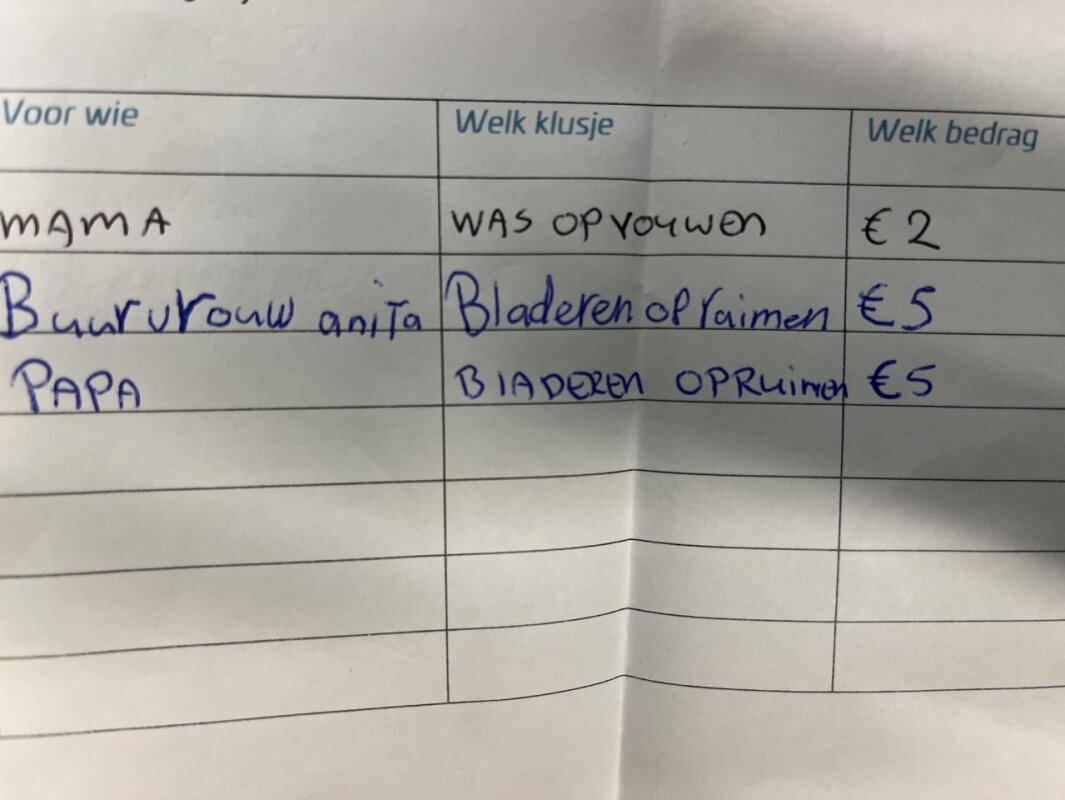 Voor wie Welk klusje Welk bedrag
MAMA WAS OPVOUWEN € 2
Buurvrouw aniTa Bladeren opraimen € 5
PAPA BlADEREN OPRuimen €5